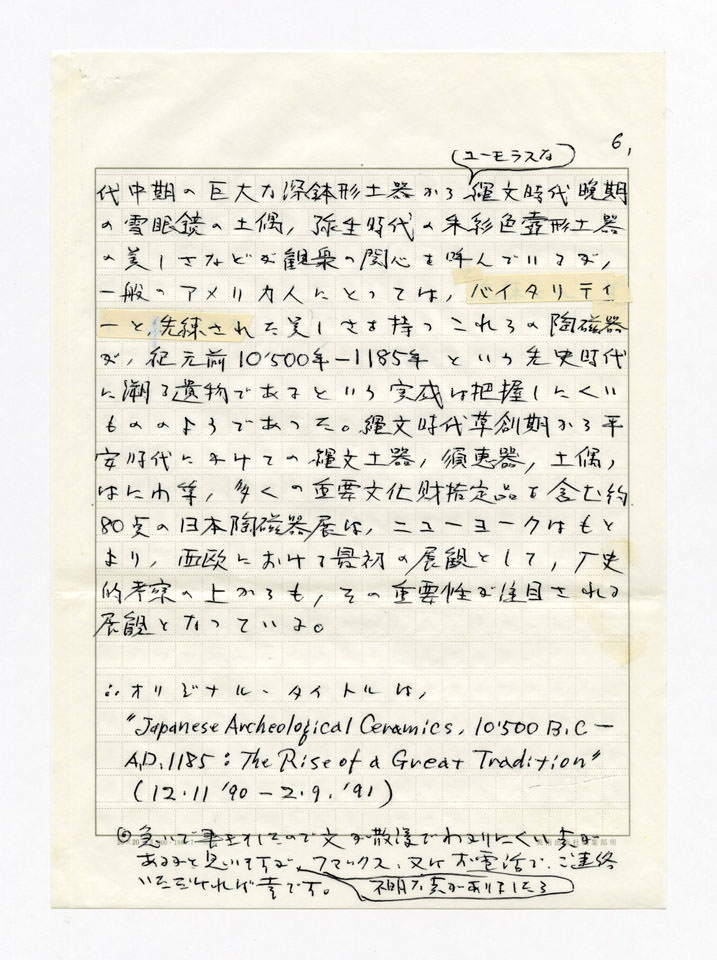 6,
(ユーモラスな)
代中期の巨大な深鉢形土器から縄文時代晩期
の雪眼鏡の土偶, 弥生時代の朱彩色壺形土器
の美しさなどが観衆の関心を呼んでいるが,
一般のアメリカ人にとっては, バイタリティ
ーと洗練された美しさを持つこれらの陶磁器
が, 紀元前10'500年-1185年という先史時代
に溯る遺物であるという実感は把握しにくい
もののようであった。縄文時代草創期から平
安時代にかけての縄文土器, 須恵器, 土偶,
はにわ等, 多くの重要文化財指定品を含む約
80点の日本陶磁器展は, ニューヨークはもと
より, 西欧における最初の展観として, 歴史
的考察の上からも, その重要性が注目される
展観となっている。
∴オリジナル・タイトルは,
"Japanese Archeological Ceramics, 10'500 B.C —
A.D. 1185 : The Rise of a Great Tradition"
(12.11 '90 - 2.9. '91)
◎急いで書きましたので文が散漫でわかりにくい点が
あるかと思いますが, ファックス, 又はお電話で, ご連絡
いただければ幸です。 不明な点がありましたら